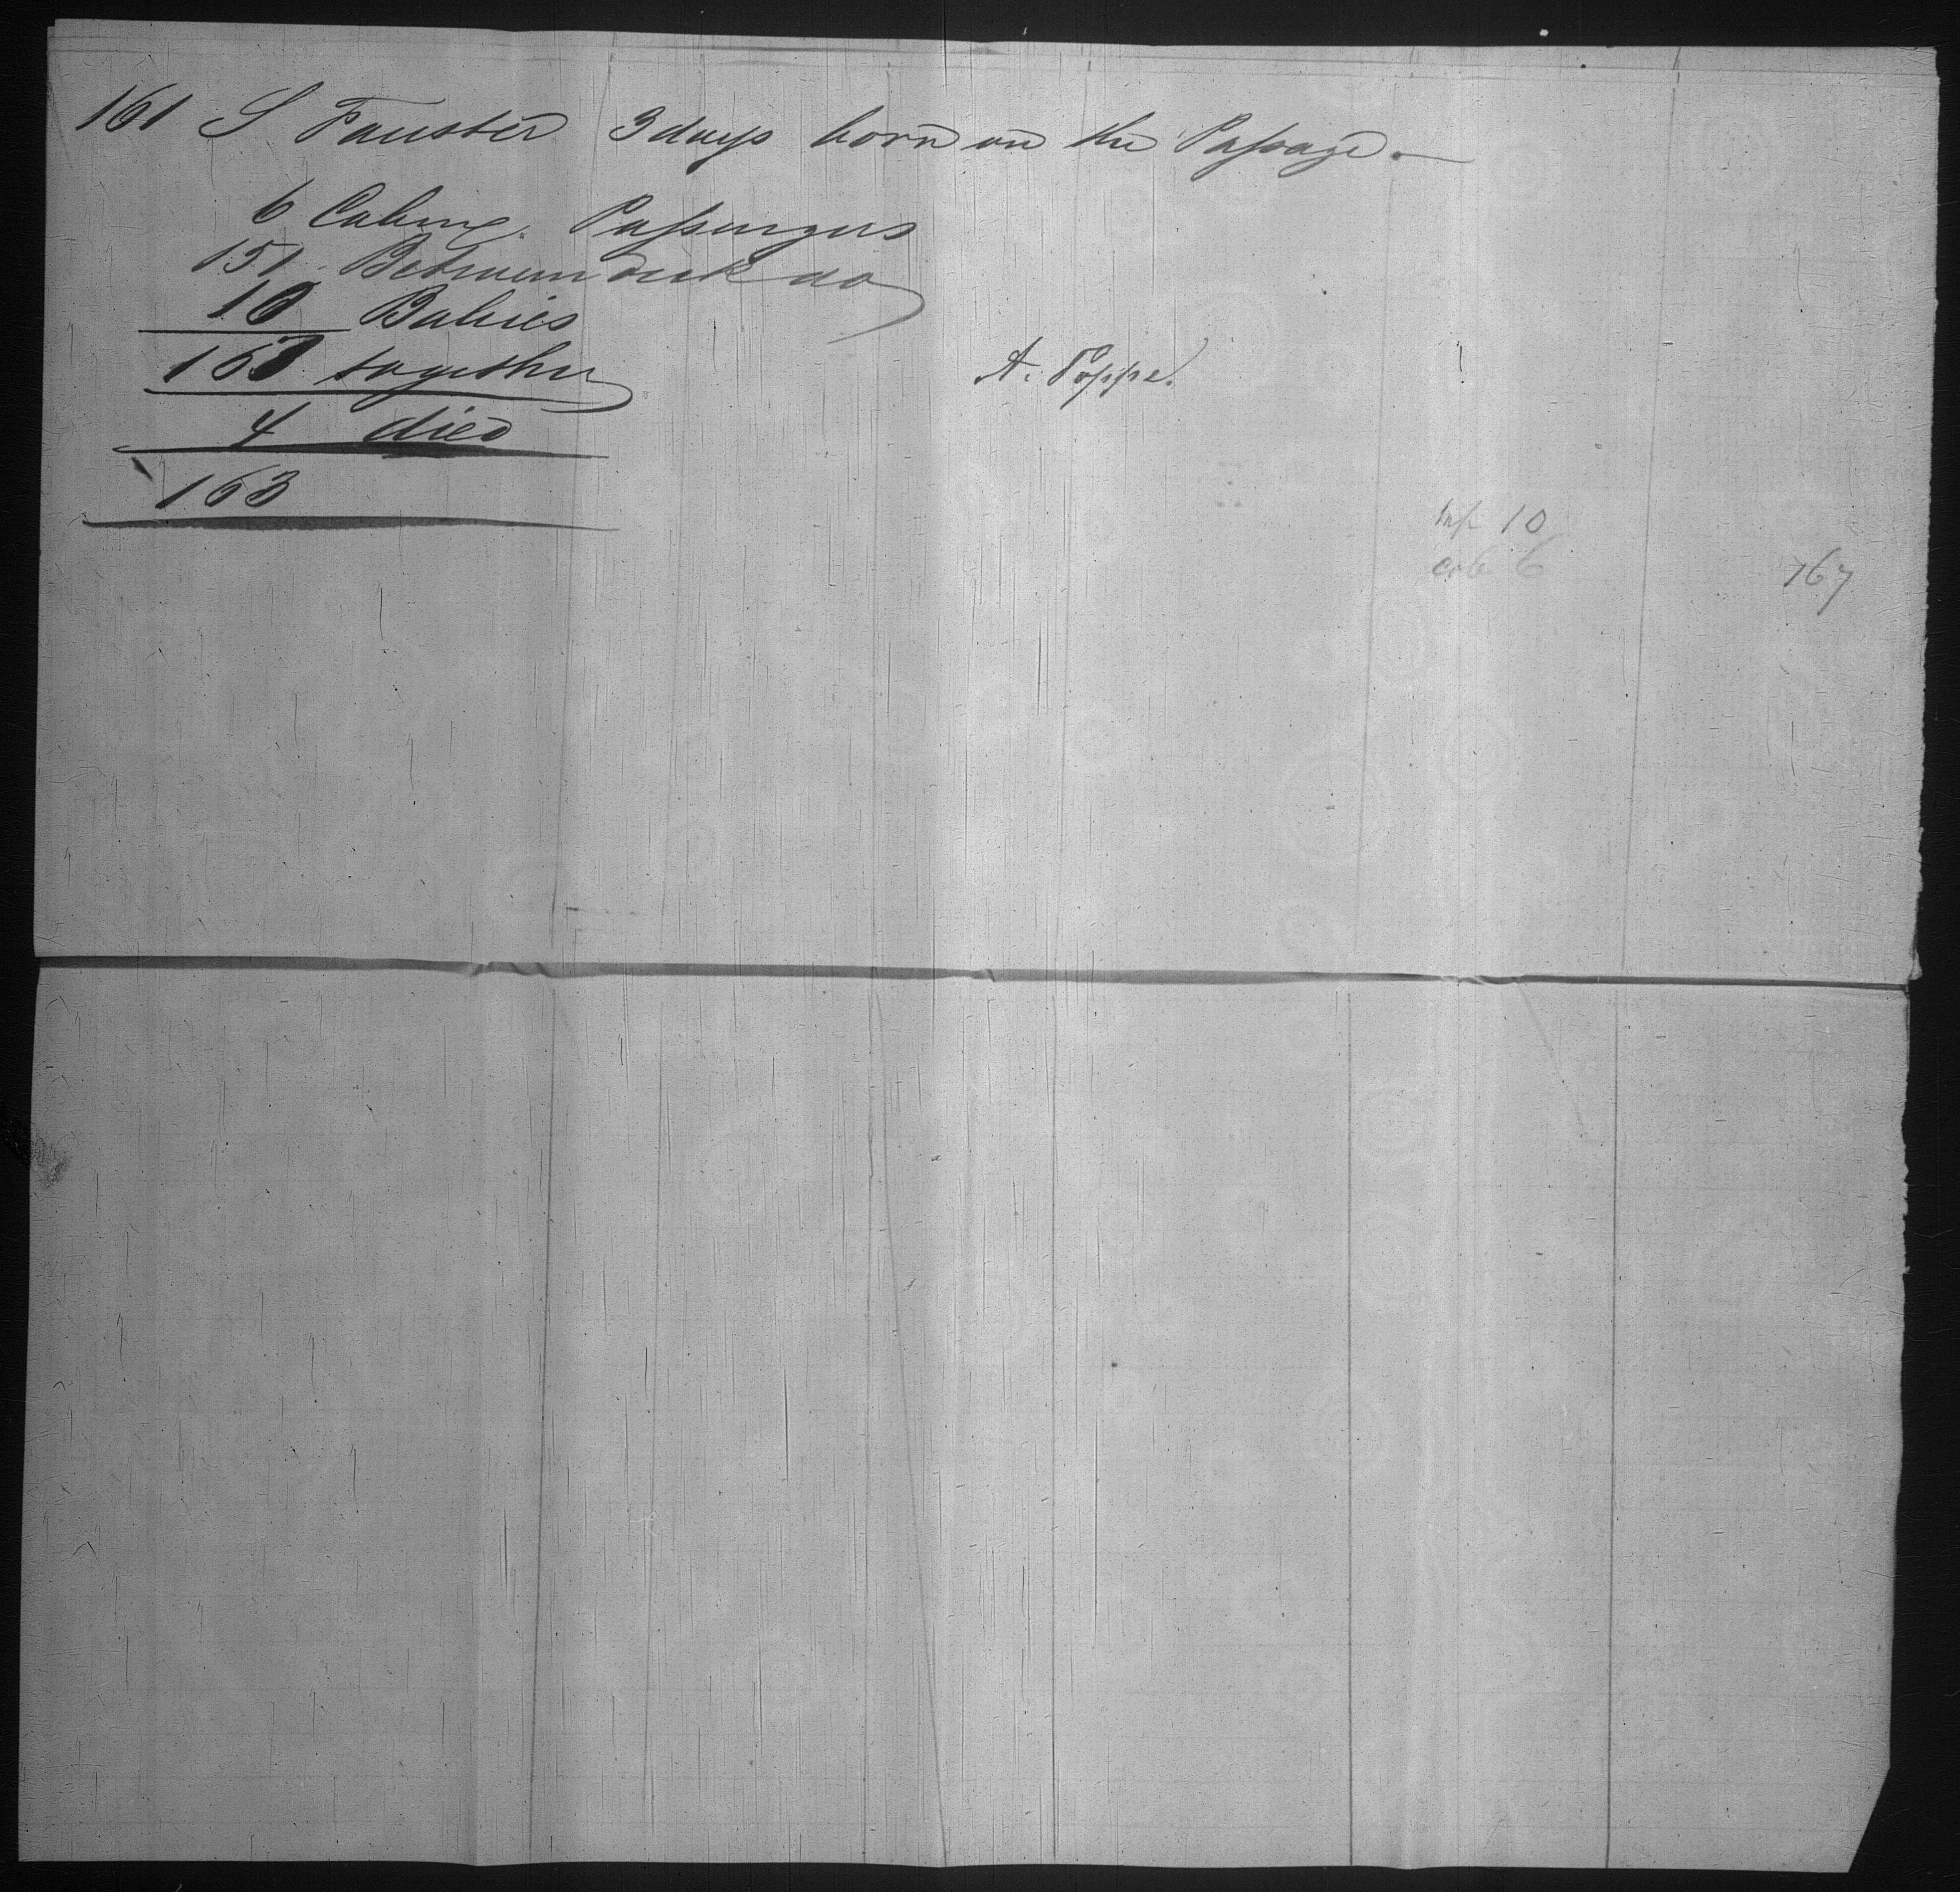 161 S Fauster 3 days born on the Passage.
6 Cabine Passengers
151 Betweendeck do
10 Babies
167 together
4 died
163
A. Poppe.
inf 10
cab 6
167